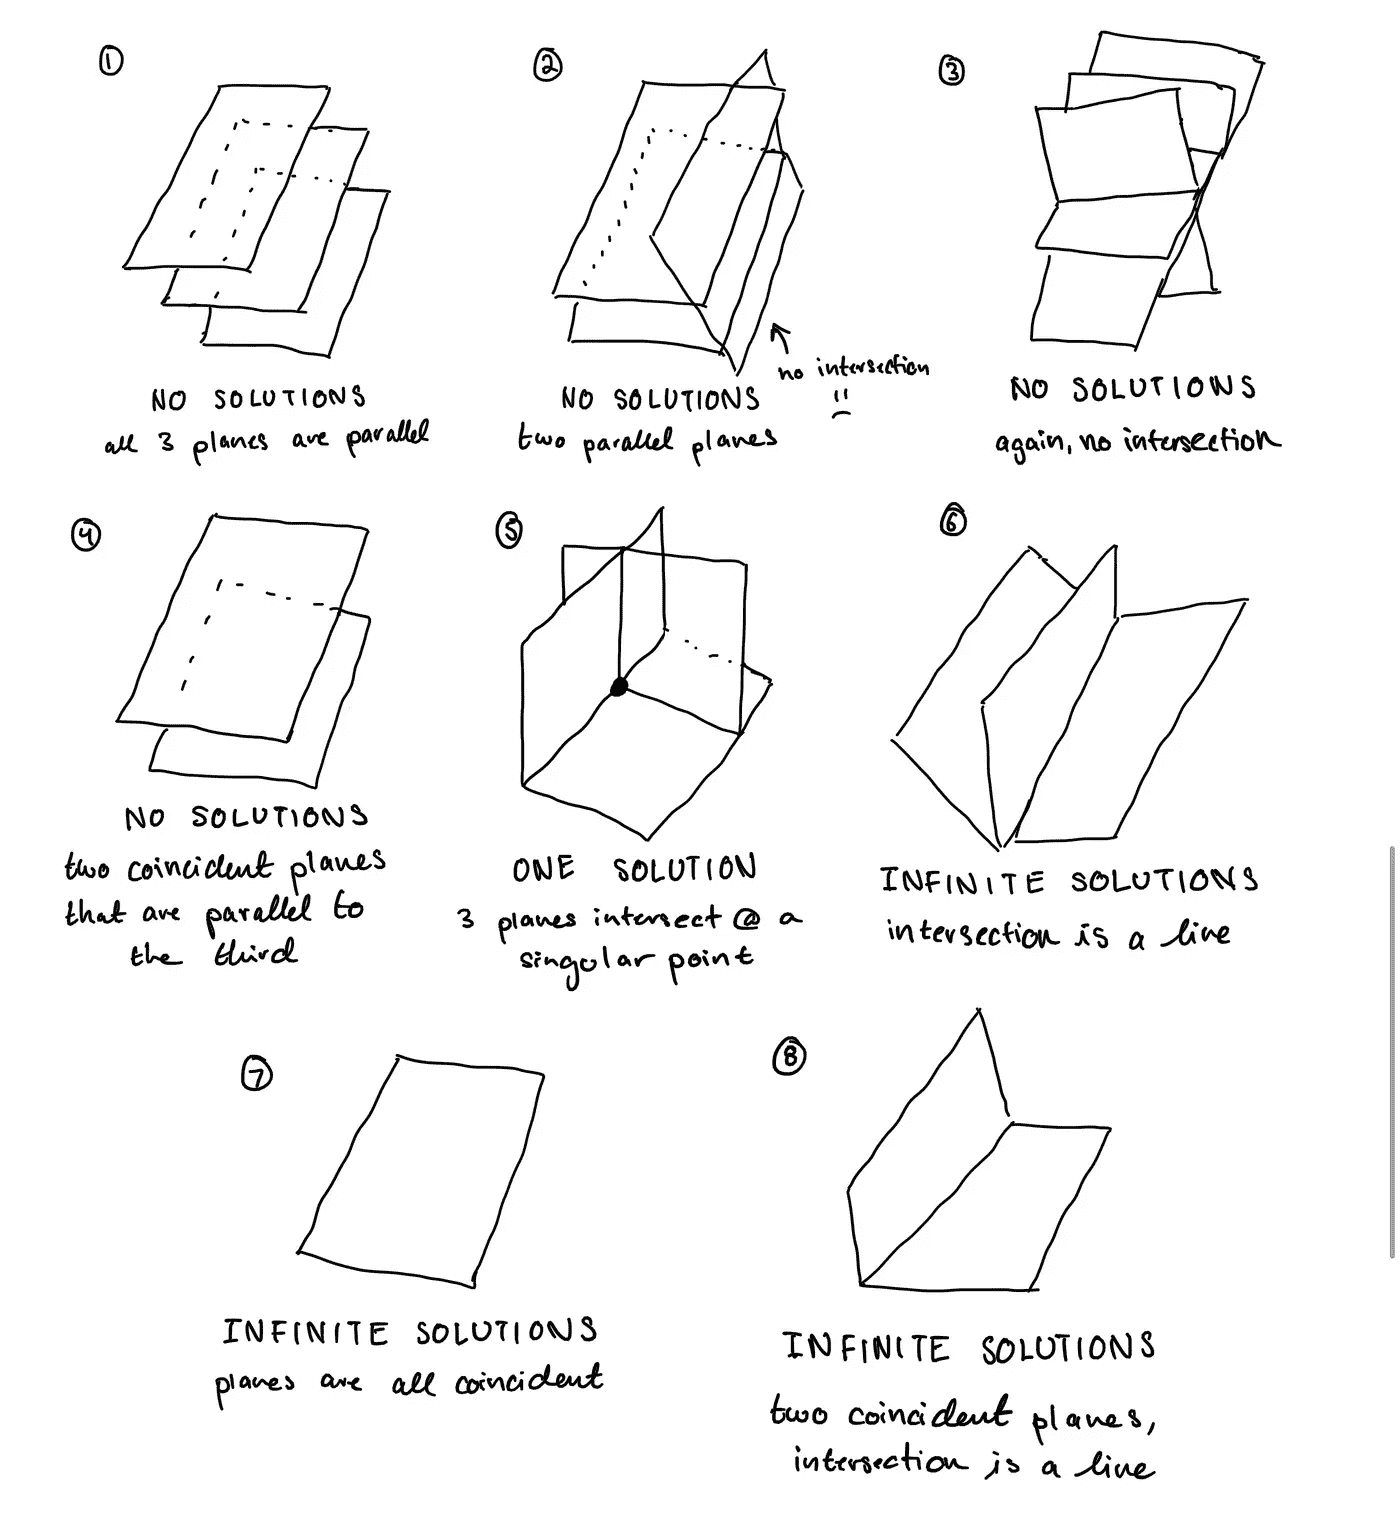 ①
NO SOLUTIONS
all 3 planes are parallel
②
no intersection
NO SOLUTIONS
two parallel planes
③
NO SOLUTIONS
again, no intersection
④
NO SOLUTIONS
two coincident planes
that are parallel to
the third
⑤
ONE SOLUTION
3 planes intersect @ a
singular point
⑥
INFINITE SOLUTIONS
intersection is a line
⑦
INFINITE SOLUTIONS
planes are all coincident
⑧
INFINITE SOLUTIONS
two coincident planes,
intersection is a line